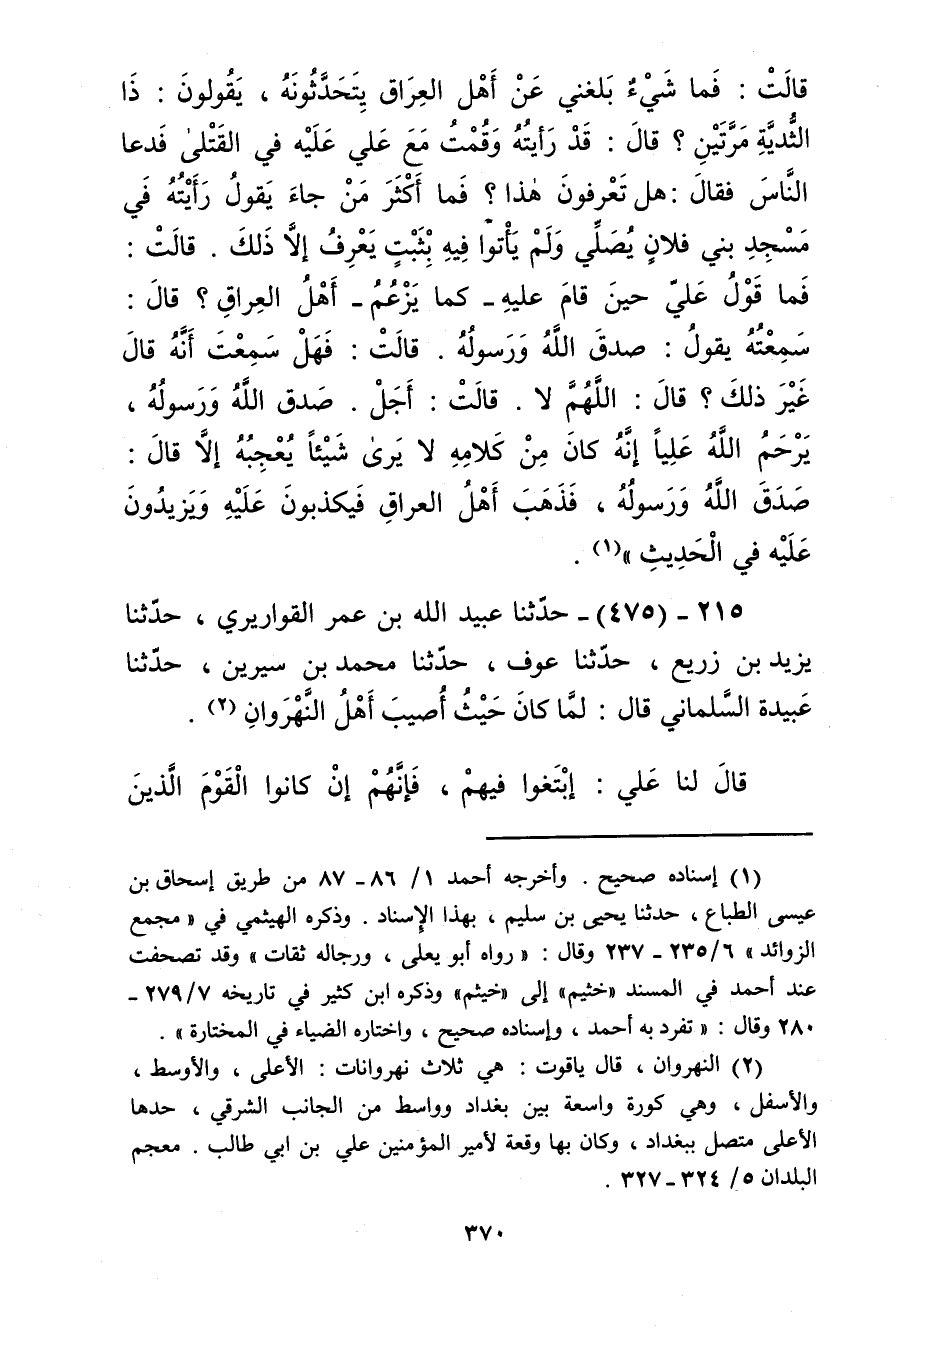 قالَتْ : فَما شَيْءٌ بَلغني عَنْ أَهْل العِرَاق يتَحَدَّثُونَهُ ، يَقُولونَ : ذَا
الثُّديَّةِ مَرَّتَيْنِ ؟ قالَ : قَدْ رَأيتُهُ وَقُمْتُ مَعَ علي عَلَيْه في القَتْلىٰ فَدعا
النَّاسَ فقالَ :هل تَعْرفونَ هٰذا ؟ فَما أَكْثَرَ مَنْ جاءَ يَقولُ رَأَيْتُهُ في
مَسْجِدِ بني فلانٍ يُصَلِّي وَلَمْ يَأْتوا فِيهِ بِثَبْتٍ يَعْرِفُ إلاَّ ذَلكَ . قالَتْ :
فَما قَوْلُ عَليّ حينَ قامَ عليهِ ـ كما يَزْعُمُ ـ أَهْلُ العِراقِ ؟ قالَ :
سَمِعْتُهُ يقولُ : صدقَ اللَّهُ وَرَسولُهُ . قالَتْ : فَهَلْ سَمِعْتَ أَنَّهُ قالَ
غَيْرَ ذلكَ ؟ قالَ : اللَّهُمَّ لا . قالَتْ : أَجَلْ . صَدق اللَّهُ وَرَسولُهُ ،
يَرْحَمُ اللَّهُ عَلِياً إنَّهُ كانَ مِنْ كَلامِهِ لا يَرىٰ شَيْئاً يُعْجِبُهُ إلاَّ قالَ :
صَدَقَ اللَّهُ وَرَسولُهُ ، فَذَهَبَ أَهْلُ العراقِ فَيكذبونَ عَلَيْهِ وَيَزيدُونَ
عَلَيْه في الْحَدِيثِ »(١) .
٢١٥ ـ (٤٧٥) ـ حدّثنا عبيد الله بن عمر القواريري ، حدّثنا
يزيد بن زريع ، حدّثنا عوف ، حدّثنا محمد بن سيرين ، حدّثنا
عَبيدة السَّلماني قال : لمَّا كانَ حَيْثُ أُصيبَ أَهْلُ النَّهْرَوانِ (٢) .
قالَ لنا عَلي : إبْتَغوا فيهمْ ، فَإنَّهُمْ إنْ كانوا الْقَوْمَ الَّذينَ
(١) إسناده صحيح . وأخرجه أحمد ١/ ٨٦ ـ ٨٧ من طريق إسحاق بن
عيسى الطباع ، حدثنا يحيى بن سليم ، بهذا الإسناد . وذكره الهيثمي في « مجمع
الزوائد » ٢٣٥/٦ ـ ٢٣٧ وقال : « رواه أبو يعلى ، ورجاله ثقات » وقد تصحفت
عند أحمد في المسند «خثيم» إلى «خيثم» وذكره ابن كثير في تاريخه ٢٧٩/٧ ـ
٢٨٠ وقال : « تفرد به أحمد ، وإسناده صحيح ، واختاره الضياء في المختارة » .
(٢) النهروان ، قال ياقوت : هي ثلاث نهروانات : الأعلى ، والأوسط ،
والأسفل ، وهي كورة واسعة بين بغداد وواسط من الجانب الشرقي ، حدها
الأعلى متصل ببغداد ، وكان بها وقعة لأمير المؤمنين علي بن ابي طالب . معجم
البلدان ٥/ ٣٢٤ ـ ٣٢٧ .
٣٧٠